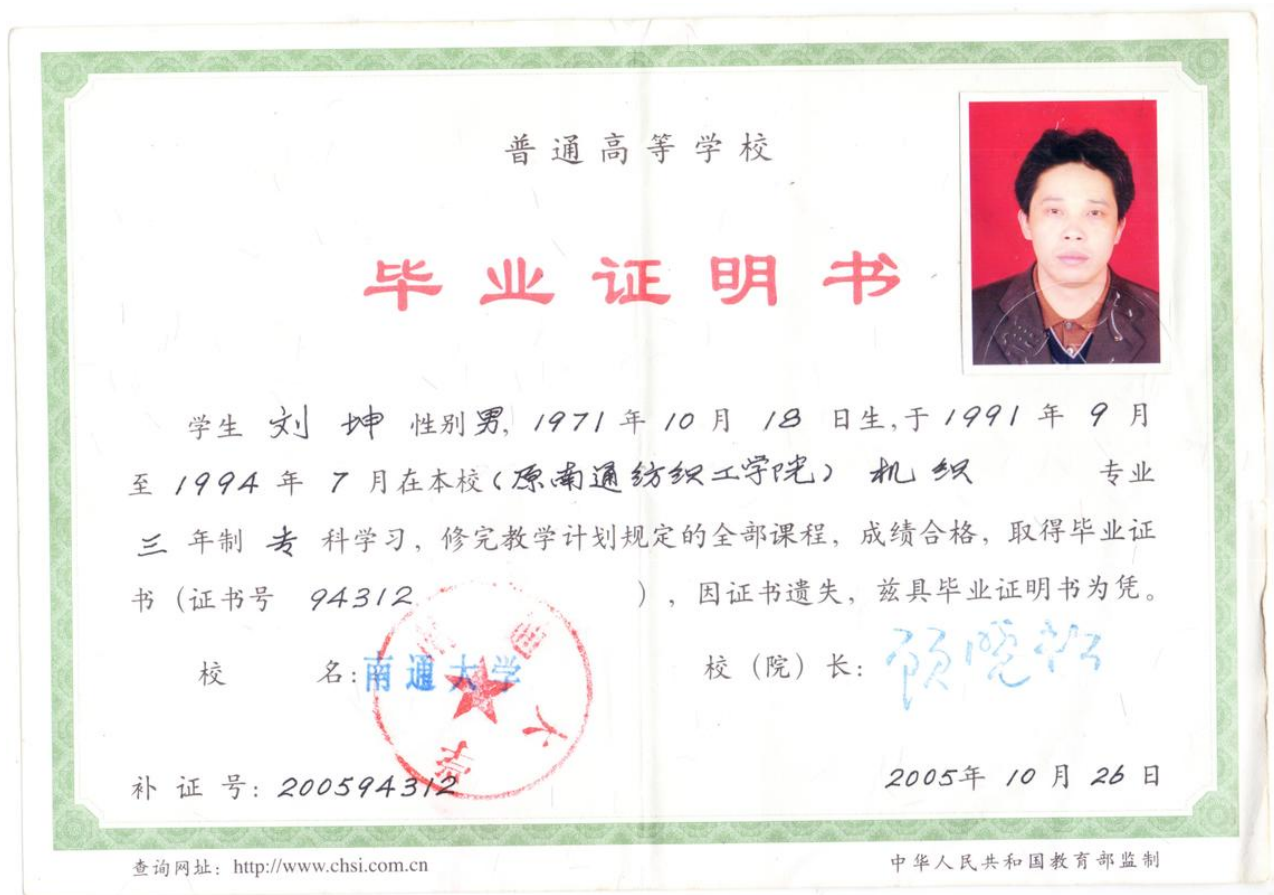 普通高等学校
毕业证明书
学生 刘坤 性别男, 1971年10月18日生,于1991年9月
至1994年7月在本校(原南通纺织工学院) 机织 专业
三年制 专 科学习，修完教学计划规定的全部课程，成绩合格，取得毕业证
书（证书号 94312 ），因证书遗失，兹具毕业证明书为凭。
校 名:南通大学 校（院）长: 顾晓松
南通大学
补证号: 200594312 2005年10月26日
查询网址：http://www.chsi.com.cn 中华人民共和国教育部监制